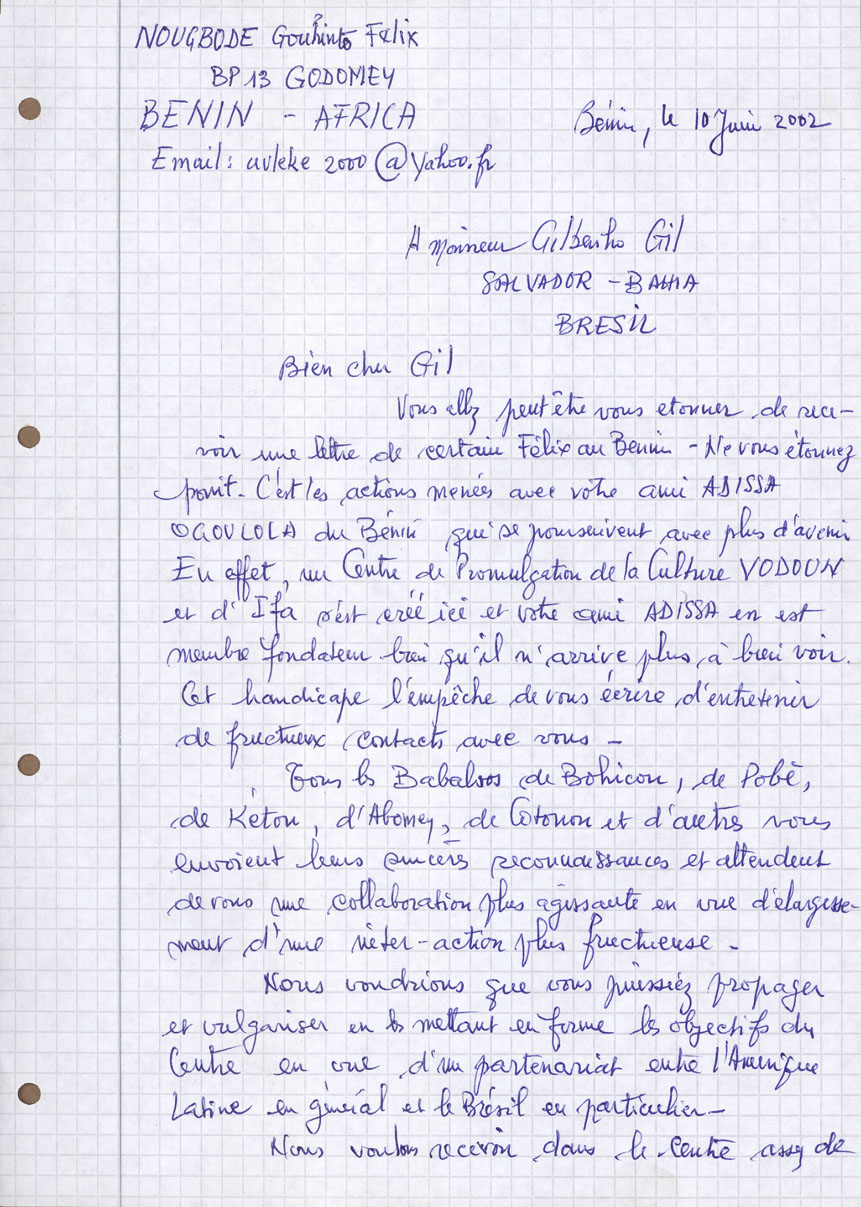 NOUGBODE Gouhinto Félix
BP 13 GODOMEY
BENIN - AFRICA
Bénin, le 10 Juin 2002
Email: avleke 2000 @ Yahoo.fr
A Monsieur Gilberho Gil
SALVADOR - BAHIA
BRESIL
Bien cher Gil
Vous allez peut être vous etonner de rece-
voir une lettre de certain Félix au Benin - Ne vous étonnez
point. C'est les actions menées avec votre ami ADISSA
OGOULOLA du Bénin qui se poursuivent avec plus d'avenir
En effet, un Centre de Promulgation de la Culture VODOUN
et d'Ifa s'est créé ici et votre ami ADISSA en est
membre fondateur bien qu'il n'arrive plus à bien voir.
Cet handicape l'empêche de vous écrire d'entretenir
de fructueux contacts avec vous -
Tous les Babalaos de Bohicon, de Pobè,
de Kétou, d'Abomey, de Cotonou et d'autres vous
envoient leurs sincères reconnaissances et attendent
de vous une collaboration plus agissante en vue d'élargisse-
ment d'une inter-action plus fructueuse -
Nous voudrions que vous puissiez propager
et vulgariser en les mettant en forme les objectifs du
Centre en vue d'un partenariat entre l'Amérique
Latine en général et le Brésil en particulier -
Nous voulons recevoir dans le centre assez de